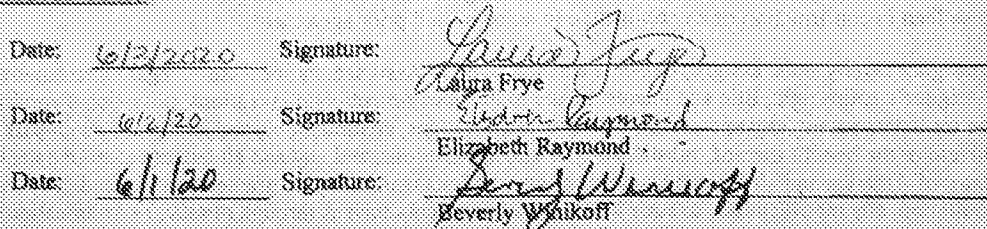 Date: 6/2/2020 Signature: Laura Frye
Laura Frye
Date: 6/2/20 Signature: Raymond
Elizabeth Raymond
Date: 6/1/20 Signature: Beverly Winikoff
Beverly Winikoff